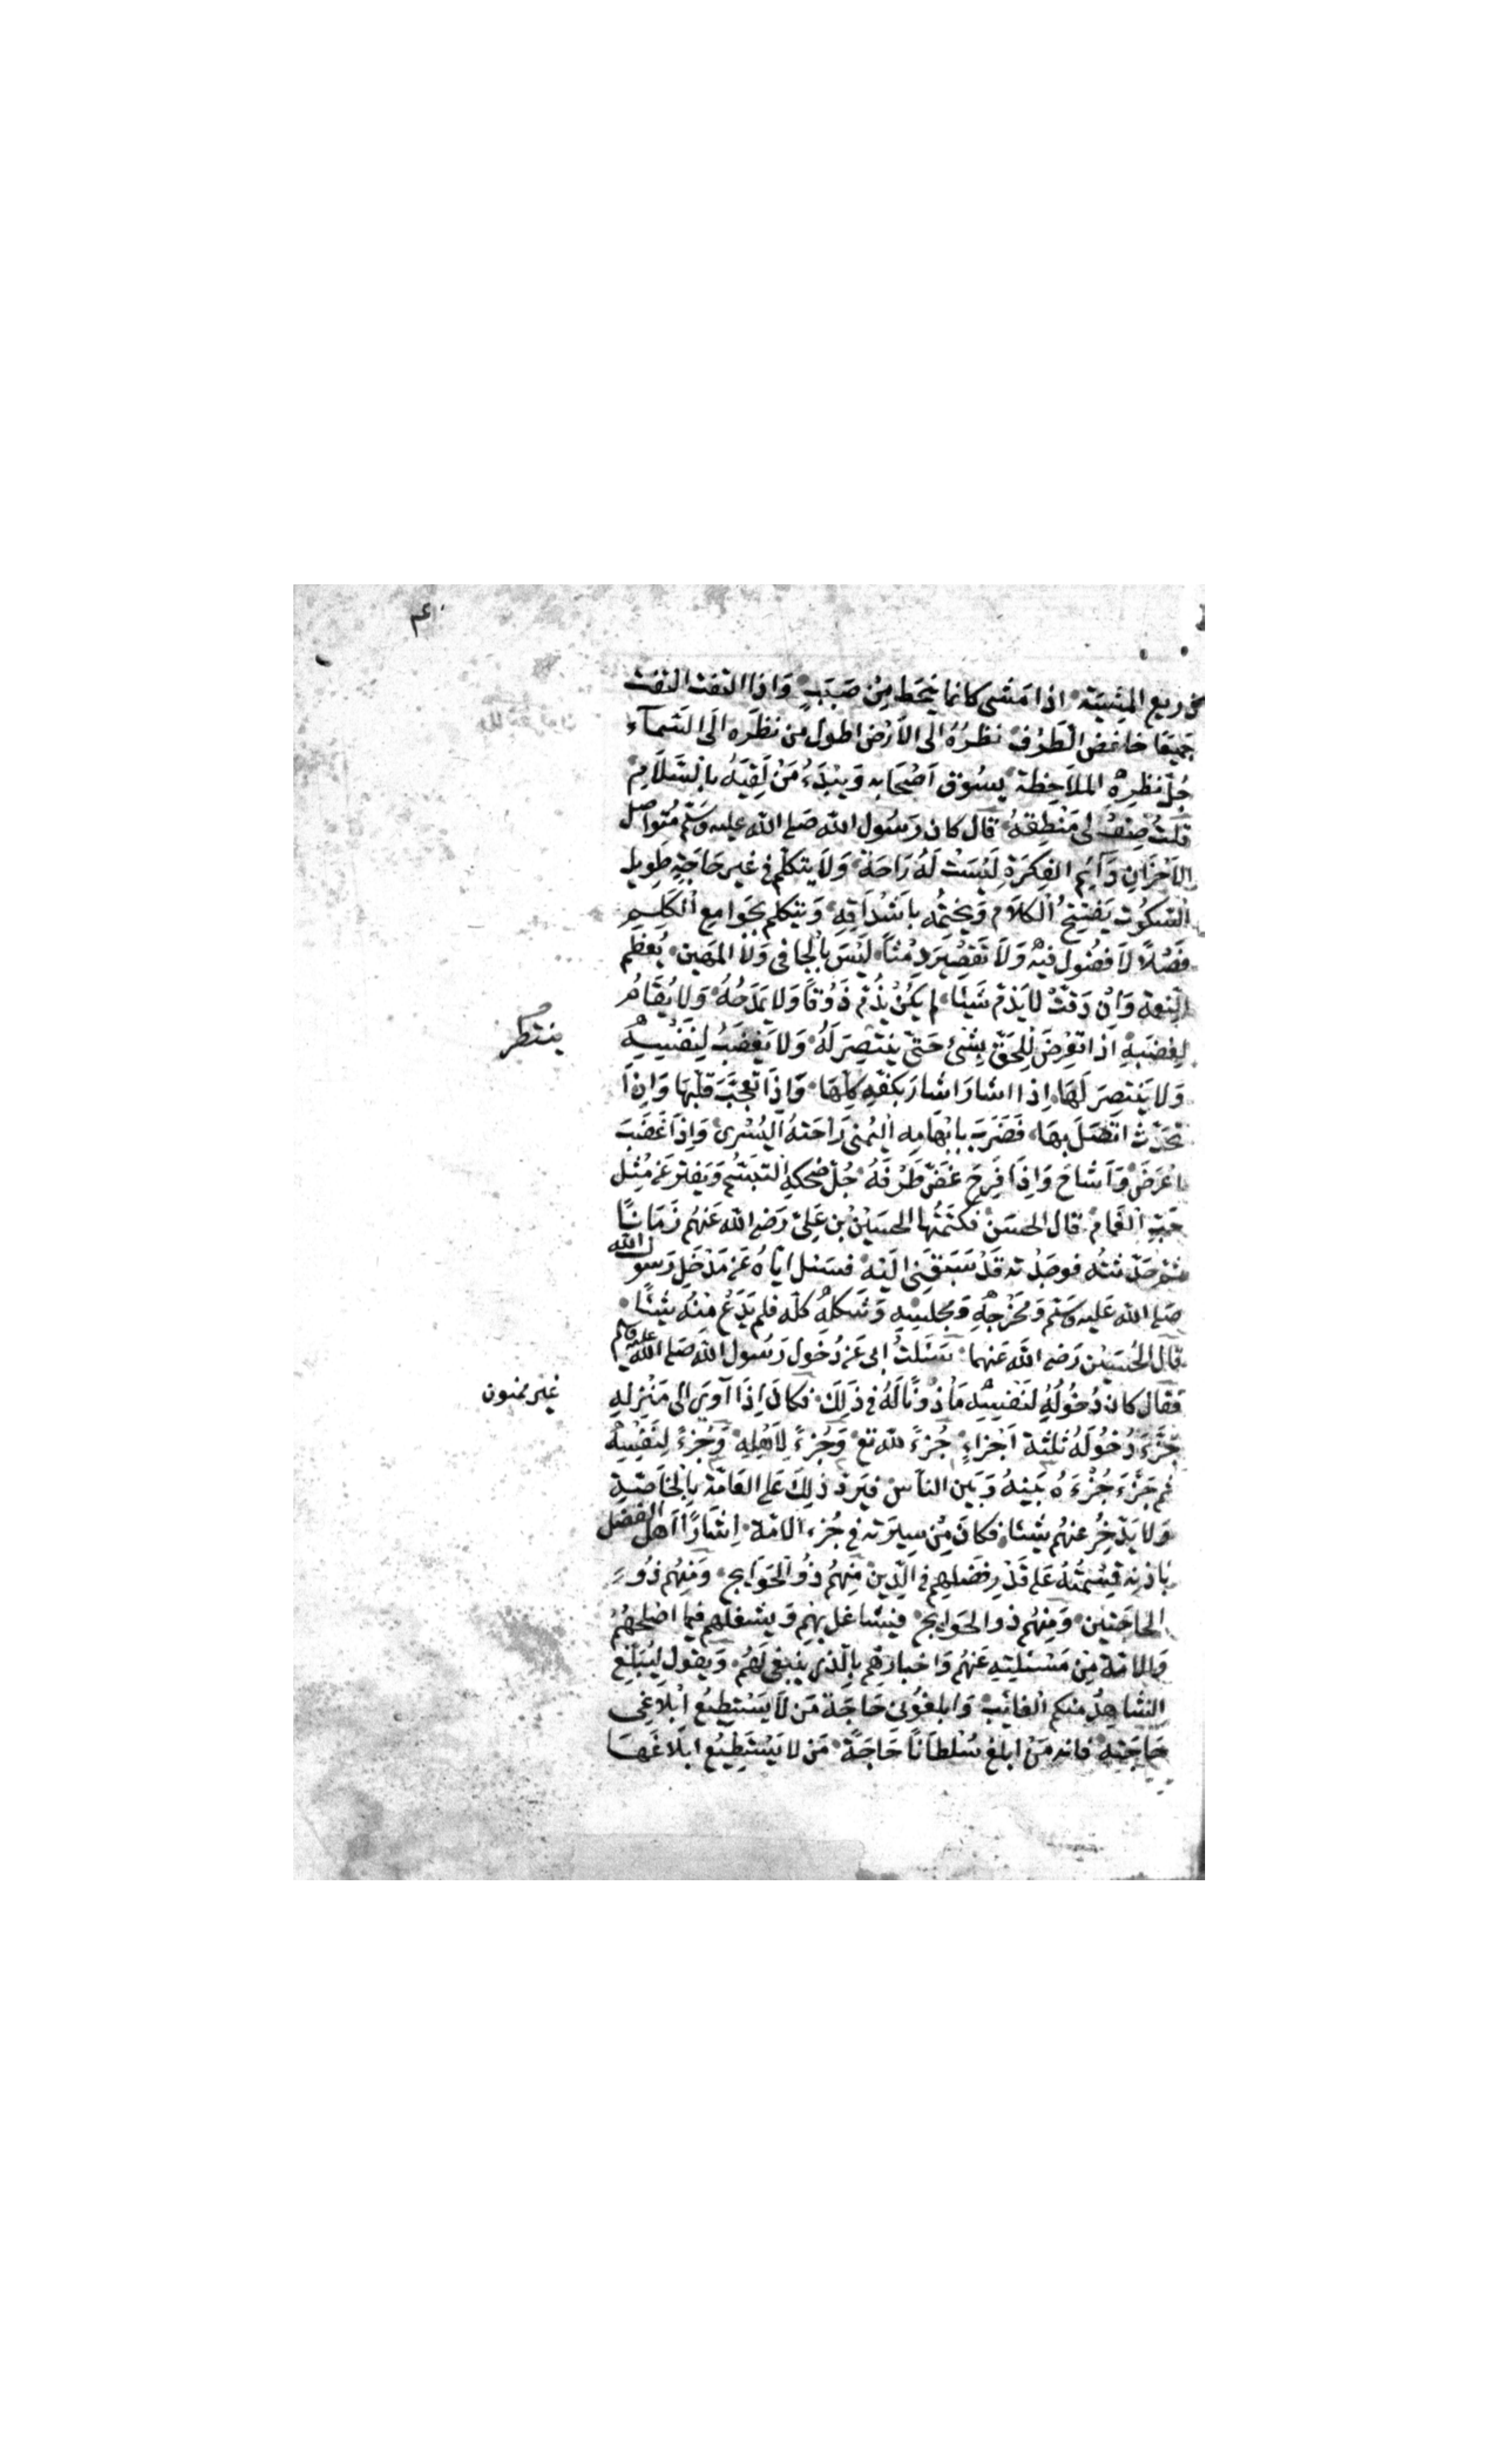 ذريع المشية اذا مَشى كانما ينحَط مِنْ صَبَبٍ وَاذا التفت التفت
جَميعًا خافض الطرْف نظرُهُ الى الاَرْض اطول مِن نظَره الَى السَّمآء
جُلّ نظرِهِ الملاَحظة يسُوق اَصْحَابه وَيَبْدَءُ مَنْ لَقِيَهُ بالسَّلاَمِ
قلتُ صِفْ لى مَنْطِقهُ قال كان رَسُول الله صَلى الله عليه وَسَلّم مُتواصل
الاَحْزَانِ دَآئِم الفِكرَةِ لَيْسَتْ لَهُ رَاحَة وَلاَ يتكلّم فى غير حَاجَةٍ طَويل
السّكُوت يَفتِتحُ الكلاَم وَيختِمُه باَشْدَاقِهِ وَيتكلّم بجَوامِع الكَلِمِ
فَصْلاً لاَ فضُول فيْه وَلاَ تَقصْير دَمْثاً لَيْسَ بالْجافى وَلاَ المَهين يُعظّم
النّعمة وَاِنْ دَقّتْ لا يَذمّ شَيْئًا لم يَكُنْ يَذُمّ ذَوَاقًا وَلا يَمْدَحُهُ وَلا يُقَامُ
لِغضَبِهِ اذا تعُرِضَ لِلحَقّ بِشَىْءٍ حَتّى يَنْتِصِرَ لَهُ وَلا يَغضَبُ لِنَفْسِهِ
ينتظر
وَلا يَنْتصِرَ لَهَا اِذا اشارَ اشارَ بكفّهِ كلّهَا وَاِذَا تعجّبَ قلّبَهَا وَاِذَا
تحَدّث اتصَلَ بهَا فَضَرَبَ بابْهَامِهِ اليُمنى رَاحَتَهُ اليُسْرى وَاِذَا غَضَبَ
اعْرَضَ وَاَشاحَ وَاِذَا فَرِحَ غضّ طَرْفَهُ جُلّ ضحكِهِ التبَسّم وَيَفتر عَنْ مثْل
حَبّ الغَمام قال الحسَن فكتَمْتُها الحسَيْن بن عَلِىّ رَضى الله عَنهُم زَمَانًا
ثم حَدّثتُه فوجَدْته قَدْ سَبَقَنى الَيْهِ فسَئل ابَاهُ عَن مَدْخَلِ رَسول الله
صَلى الله عَليه وَسَلم وَمَخْرَجِهِ وَمجلِسِهِ وَشكلهُ كلّهِ فلم يَدَعْ مِنْهُ شَيْئًا
قال الحُسَيْن رَضى الله عَنهما سَئَلتُ ابى عَن دُخول رَسُول الله صَلى الله عليه وسلم
فقال كان دُخُولُهُ لنَفْسِهِ مَأذُونًا لَهُ فى ذَلِكَ فكانَ اِذَا آوَى الى مَنْزلِهِ
غير ممنون
جَزّءَ دُخُولَهُ ثلثة اَجْزَاءٍ جُزءً لله تع وَجُزءً لاَهْلِهِ وَجُزءً لِنَفْسِهْ
ثم جَزّءَ جُزْءَهُ بَيْنَهُ وَبَيْن الناَس فيَردّ ذلكَ عَلى العَامّة بالخاصّةِ
وَلا يَدّخِرُ عنهُم شَيْئًا فكانَ مِنْ سِيرَته فى جُزء الامّة اِيثَارًا اَهل الفضل
باذنِه قسْمَتُهُ عَلى قَدْرِ فضَلِهِم فى الدّين مِنهُم ذُو الحَوَايج وَمِنهُم ذُو
الحاجَتَين وَمِنهُم ذو الحوَايج فيتشاغل بهِم وَيشغلهم فيما اصْلحَهُمْ
وَالامّة مِن مَسْئليَتِهِ عَنهُم وَاخبَارهِم بالّذى يَنبغى لَهُم وَيقول ليُبلّغ
الشاهِدُ منكم الغائب وَابلغُونى حَاجَة مَن لاَ يَسْتطيعُ اِبْلاغى
حَاجَتِهِ فانه مَنْ ابلغ سُلْطانًا حَاجَة مَن لا يَسْتَطِيعُ ابلاَغَهَا